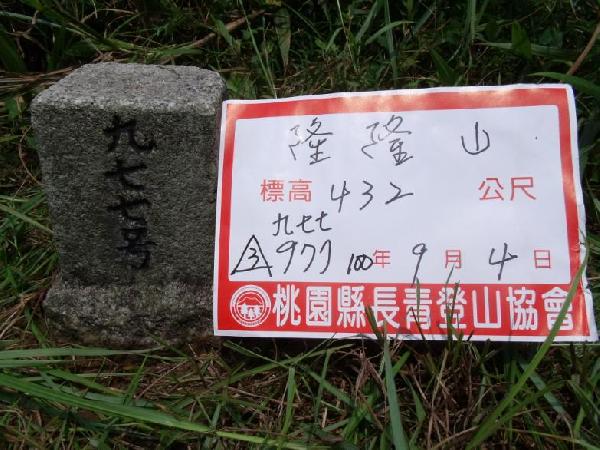 九七七号
隆隆山
標高 432 公尺
九七七
△3 977 100年 9月 4日
桃園縣長青登山協會